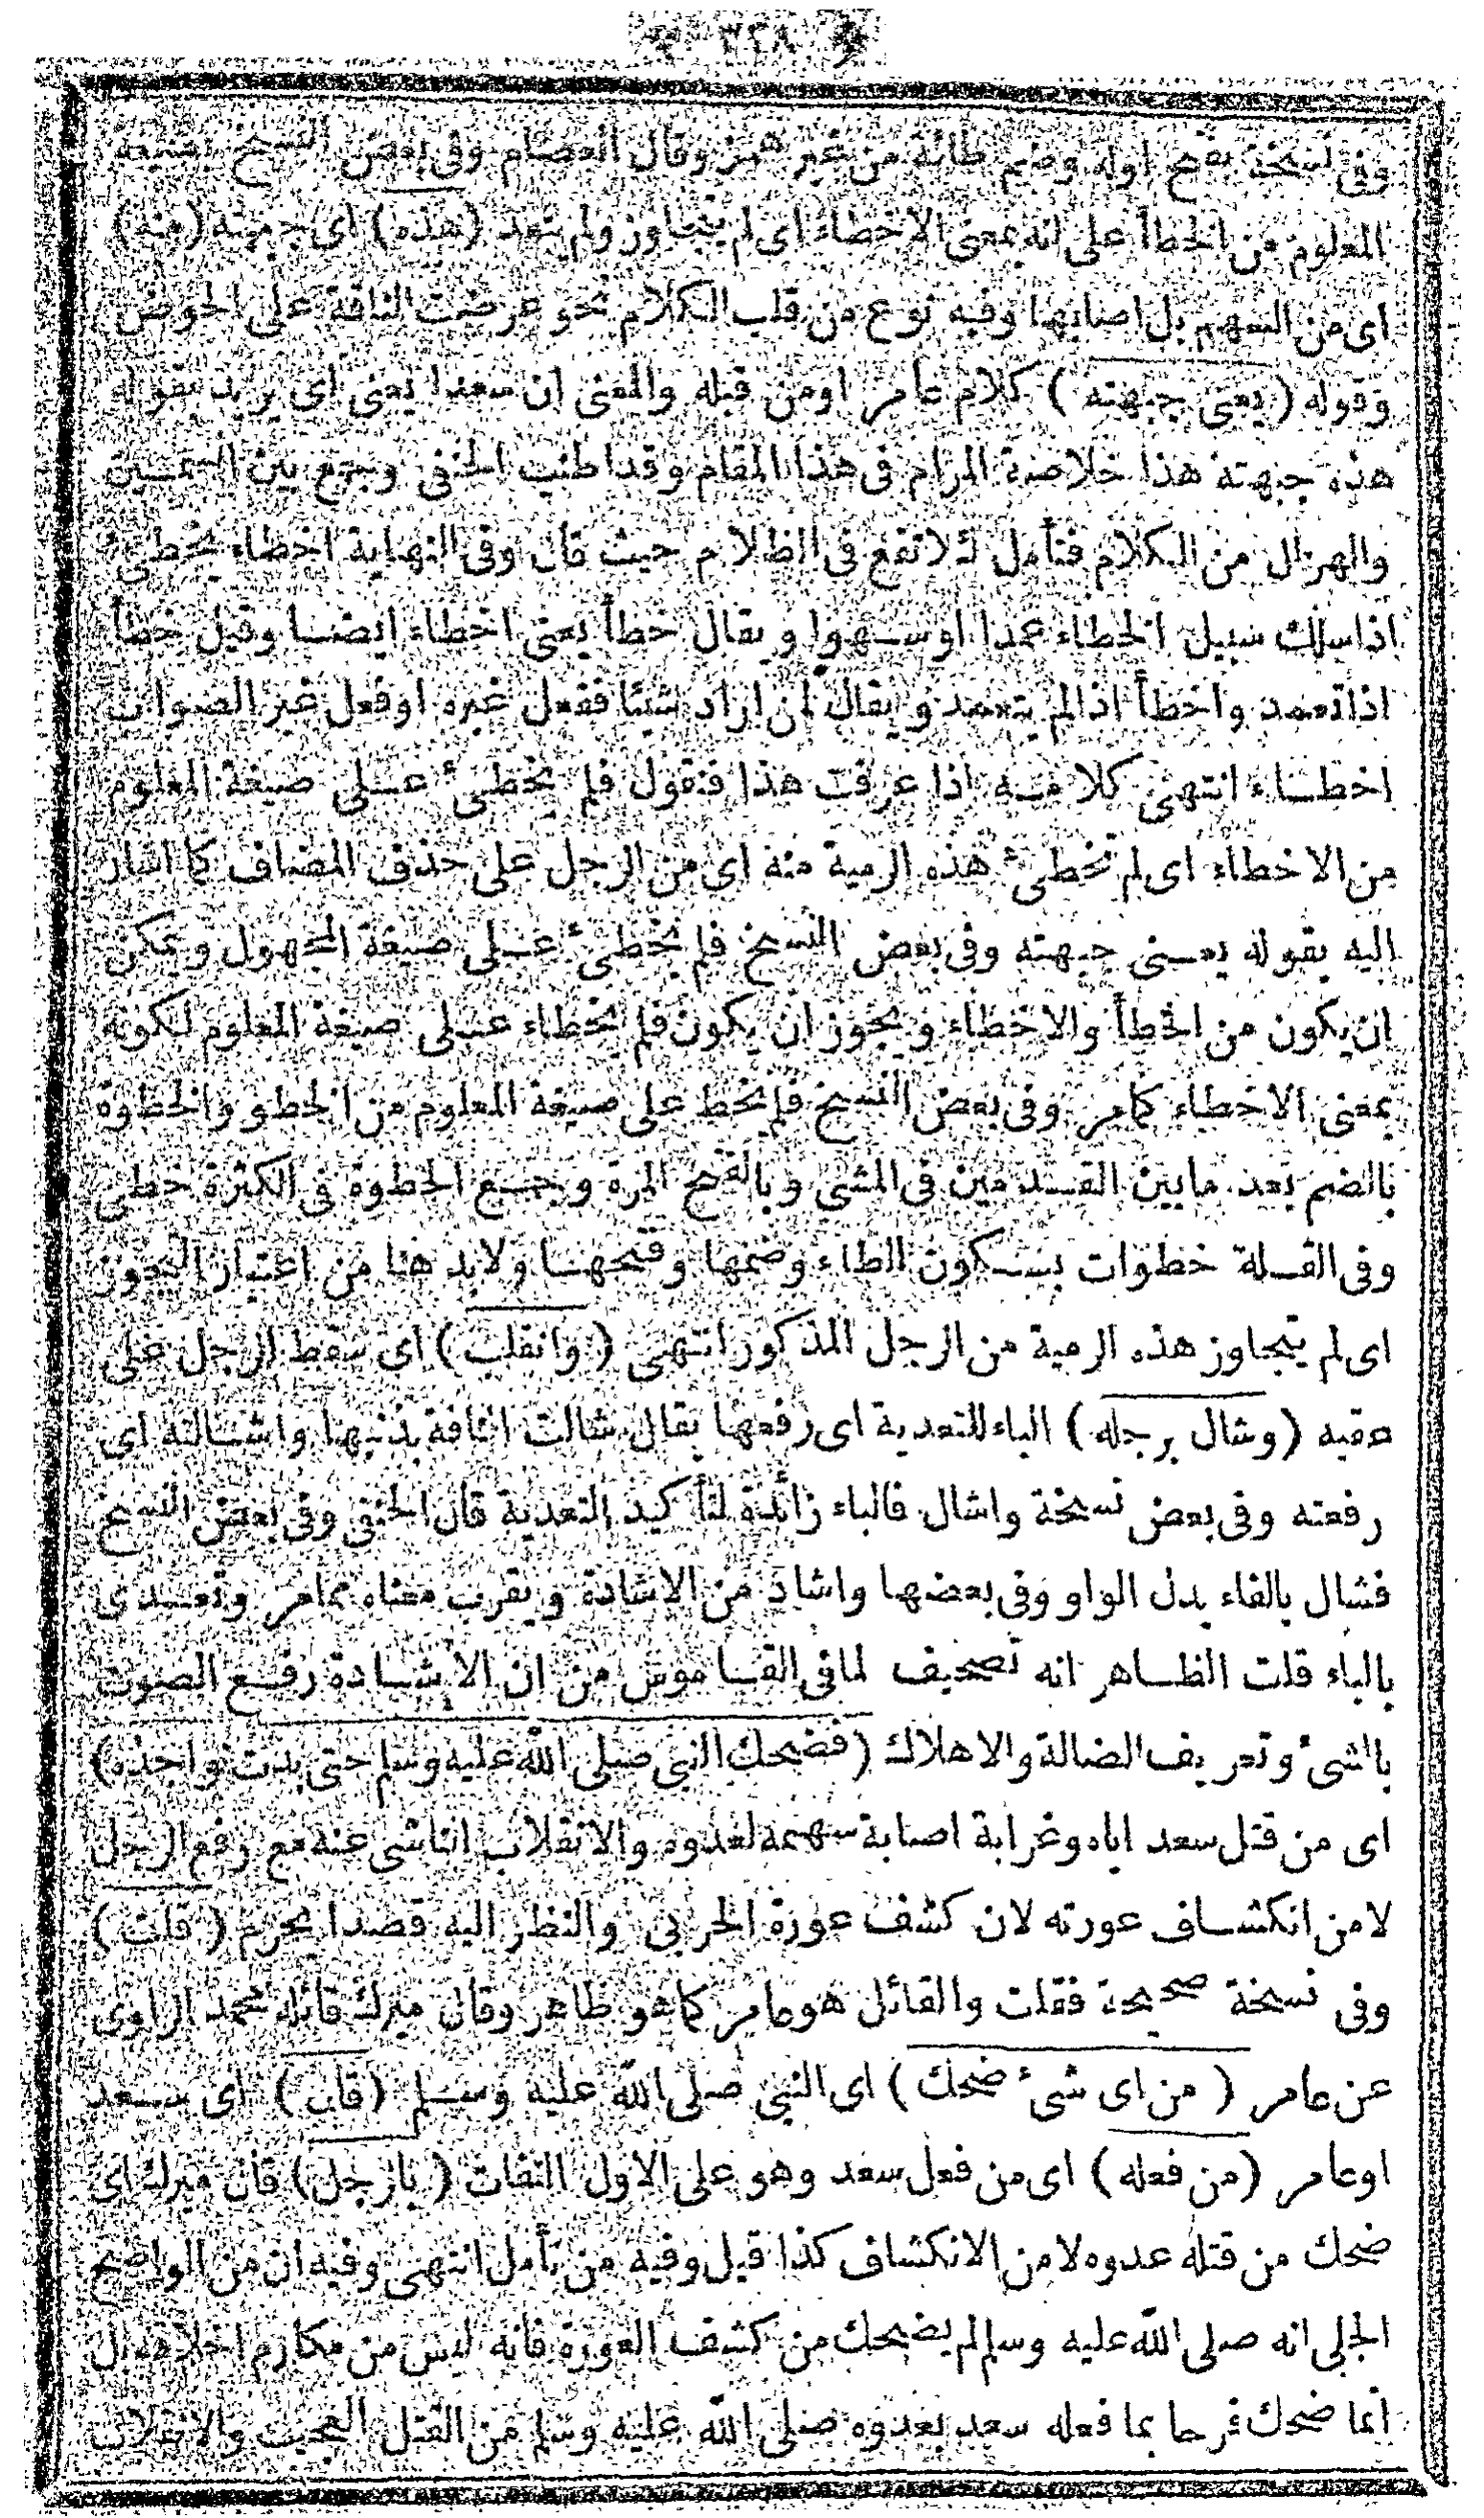 ﴿ ٢٢٨ ﴾
وفى نسخة بفتح اوله وضم طائه من غير همز وقال العصام وفى بعض النسخ بصيغة
المعلوم من الخطأ على انه بمعنى الاخطاء اى لم يتجاوز ولم يتعد (هذه) اى جبهته (منه)
اى من السهم بل اصابها وفيه نوع من قلب الكلام نحو عرضت الناقة على الحوض
وقوله (يعنى جبهته) كلام عامر اومن قبله والمعنى ان سعدا يعنى اى يريد بقوله
هذه جبهته هذا خلاصة المرام فى هذا المقام وقد اطنب الحنفى وجمع بين السمين
والهزال من الكلام فتأمل لئلا تقع فى الظلام حيث قال وفى النهاية اخطاء يخطئ
اذا سلك سبيل الخطاء عمدا اوسهوا ويقال خطأ بمعنى اخطاء ايضا وقيل خطأ
اذا تعمد واخطأ اذالم يتعمد ويقال لمن اراد شيئا ففعل غيره اوفعل غير الصواب
اخطاء انتهى كلامه اذا عرفت هذا فنقول فلم يخطئ على صيغة المعلوم
من الاخطاء اى لم تخطئ هذه الرمية منه اى من الرجل على حذف المضاف كما اشار
اليه بقوله يعنى جبهته وفى بعض النسخ فلم يخطئ على صيغة المجهول ويمكن
ان يكون من الخطأ والاخطاء ويجوز ان يكون فلم يخطاء على صيغة المعلوم لكونه
بمعنى الاخطاء كمامر وفى بعض النسخ فلم يخط على صيغة المعلوم من الخطو والخطوة
بالضم بعد مابين القدمين فى المشى وبالفتح المرة وجمع الخطوة فى الكثرة خطى
وفى القلة خطوات بسكون الطاء وضمها وفتحها ولابد هنا من اعتبار التجوز
اى لم يتجاوز هذه الرمية من الرجل المذكور انتهى (وانقلب) اى سقط الرجل على
عقبه (وشال برجله) الباء للتعدية اى رفعها يقال شالت الناقة بذنبها واشالته اى
رفعته وفى بعض نسخة واشال فالباء زائدة لتأكيد التعدية قال الحنفى وفى بعض النسخ
فشال بالفاء بدل الواو وفى بعضها واشاد من الاشادة ويقرب معناه بمامر وتعدى
بالباء قلت الظاهر انه تصحيف لمافى القاموس من ان الاشادة رفع الصوت
بالشئ وتعريف الضالة والاهلاك (فضحك النبى صلى الله عليه وسلم حتى بدت نواجذه)
اى من قتل سعد اياه وغرابة اصابة سهمه لعدوه والانقلاب الناشى عنه مع رفع الرجل
لامن انكشاف عورته لان كشف عورة الحربى والنظر اليه قصدا يحرم (قلت)
وفى نسخة صحيحة فقلت والقائل هو عامر كماهو ظاهر وقال ميرك قائله محمد الراوى
عن عامر (من اى شئ ضحك) اى النبى صلى الله عليه وسلم (قال) اى سعد
اوعامر (من فعله) اى من فعل سعد وهو على الاول التفات (بالرجل) قال ميرك اى
ضحك من قتله عدوه لامن الانكشاف كذا قيل وفيه من تأمل انتهى وفيه ان من الواضح
الجلى انه صلى الله عليه وسلم لم يضحك من كشف العورة فانه ليس من مكارم اخلاقه بل
انما ضحك فرحا بما فعله سعد بعدوه صلى الله عليه وسلم من القتل العجيب والانقلاب